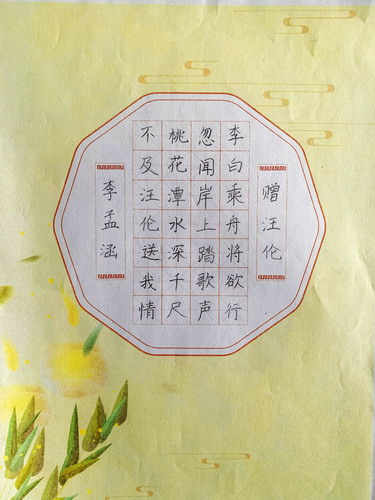 赠汪伦
李白乘舟将欲行
忽闻岸上踏歌声
桃花潭水深千尺
不及汪伦送我情
李孟涵